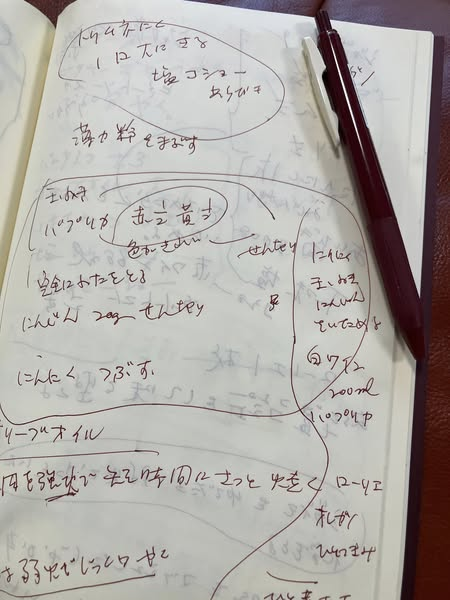 トリムネにく
1口大にきる
塩コショー
あらびき
薄力粉をまぶす
玉ねぎ
パプリカ 赤1/2 黄1/2
色がきれい
せんぎり
完全にわたをとる
にんじん 20g せんぎり
にんにく つぶす
にんにく
玉ねぎ
にんじん
をいためる
白ワイン
200ml
パプリカ
リーブオイル
肉を強火で 短時間にさっと焼く
ローリエ
は弱火でじっくり